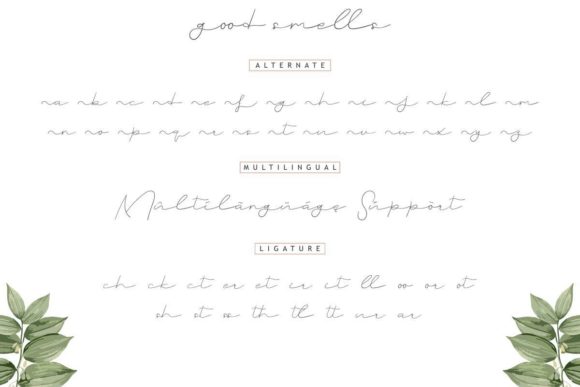 good smells
ALTERNATE
a b c d e f g h i j k l m
n o p q r s t u v w x y z
MULTILINGUAL
Mültílängüágę Süppört
LIGATURE
ch ck ct er et ir it ll oo or ot
sh st ss th tl tt ur ar